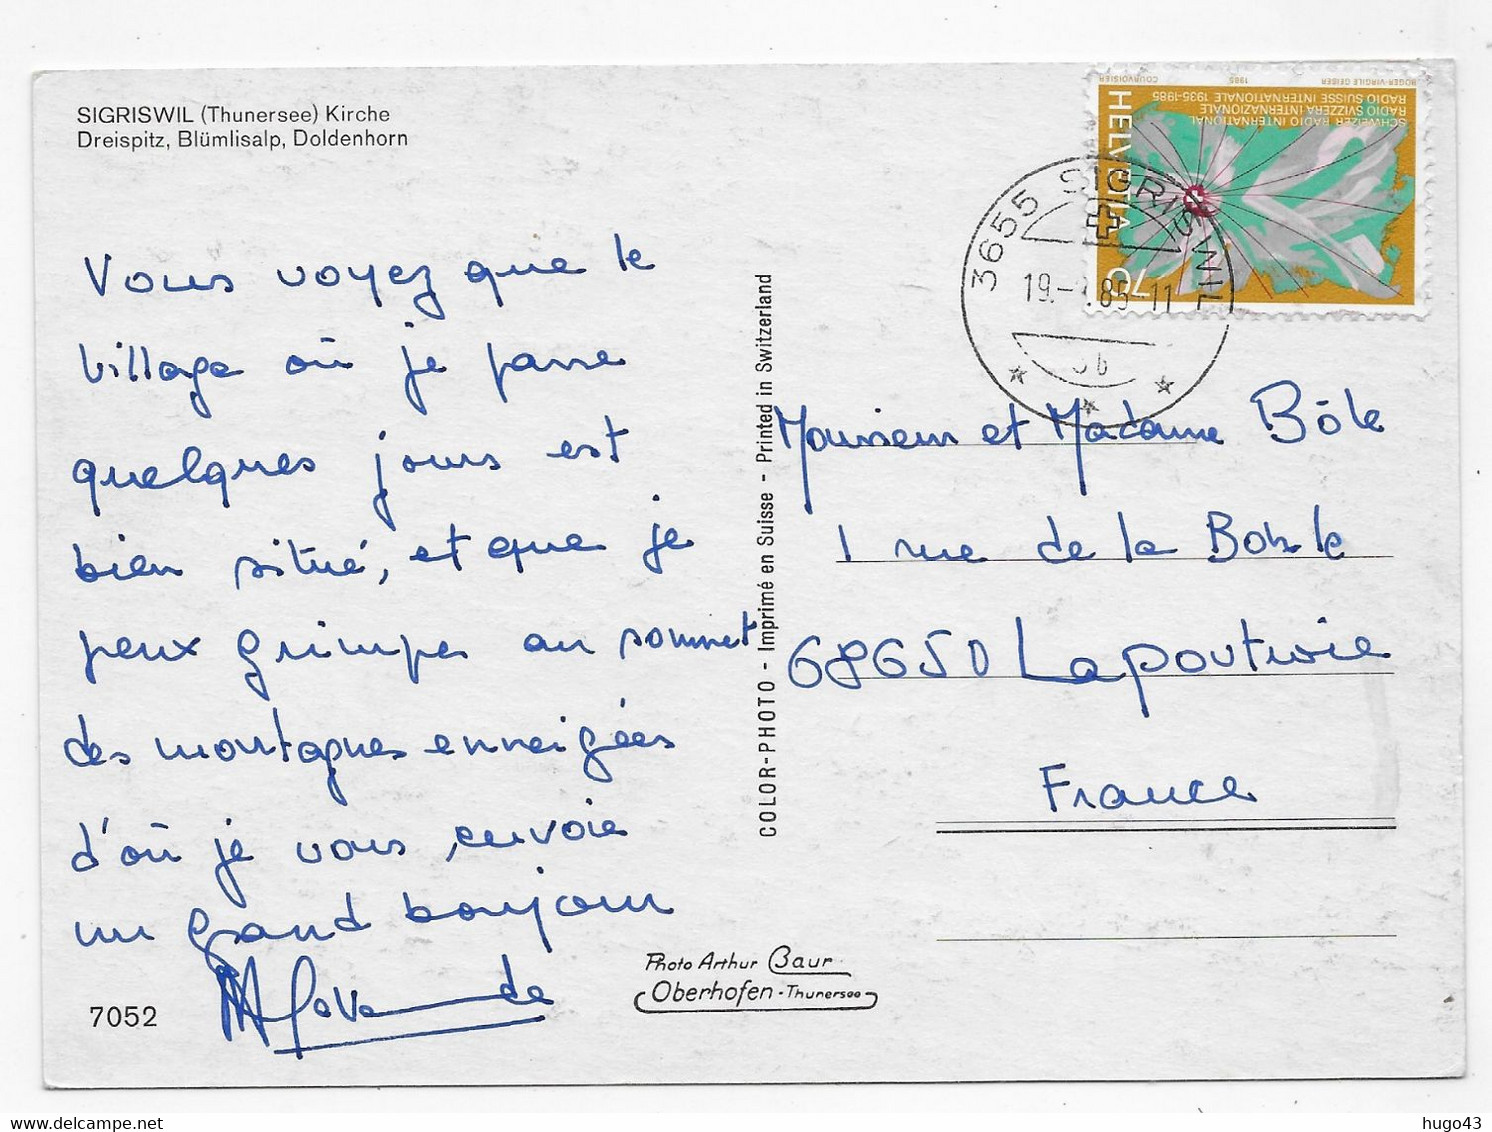 SIGRISWIL (Thunersee) Kirche
Dreispitz, Blümlisalp, Doldenhorn
Vous voyez que le
village où je passe
quelques jours est
bien situé, et que je
peux grimper au sommet
des montagnes enneigées
d'où je vous envoie
un grand bonjour
7052
COLOR-PHOTO - Imprimé en Suisse - Printed in Switzerland
Photo Arthur Baur
Oberhofen - Thunersee
ROGER-VIRGILE GEISER 1985 COURVOISIER
SCHWEIZER RADIO INTERNATIONAL
RADIO SVIZZERA INTERNAZIONALE
RADIO SUISSE INTERNATIONALE 1935-1985
HELVETIA
70
3655 SIGRISWIL
19.- .85-11
Monsieur et Madame Bôle
1 rue de la
68650 Lapoutroie
France
hugo43